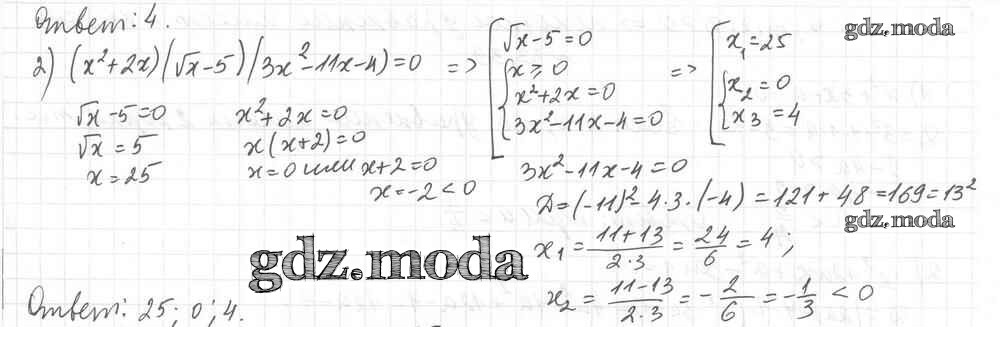 Ответ: 4.
2) (x²+2x)(√x-5)(3x²-11x-4)=0 => [ √x-5=0 { x≥0 x²+2x=0 3x²-11x-4=0 => [ x₁=25 { x₂=0 x₃=4
gdz.moda
√x-5=0
√x=5
x=25
x²+2x=0
x(x+2)=0
x=0 или x+2=0
x=-2<0
3x²-11x-4=0
Д=(-11)²-4·3·(-4)=121+48=169=13²
gdz.moda
x₁=(11+13)/(2·3)=24/6=4;
x₂=(11-13)/(2·3)=-2/6=-1/3<0
gdz.moda
Ответ: 25; 0; 4.